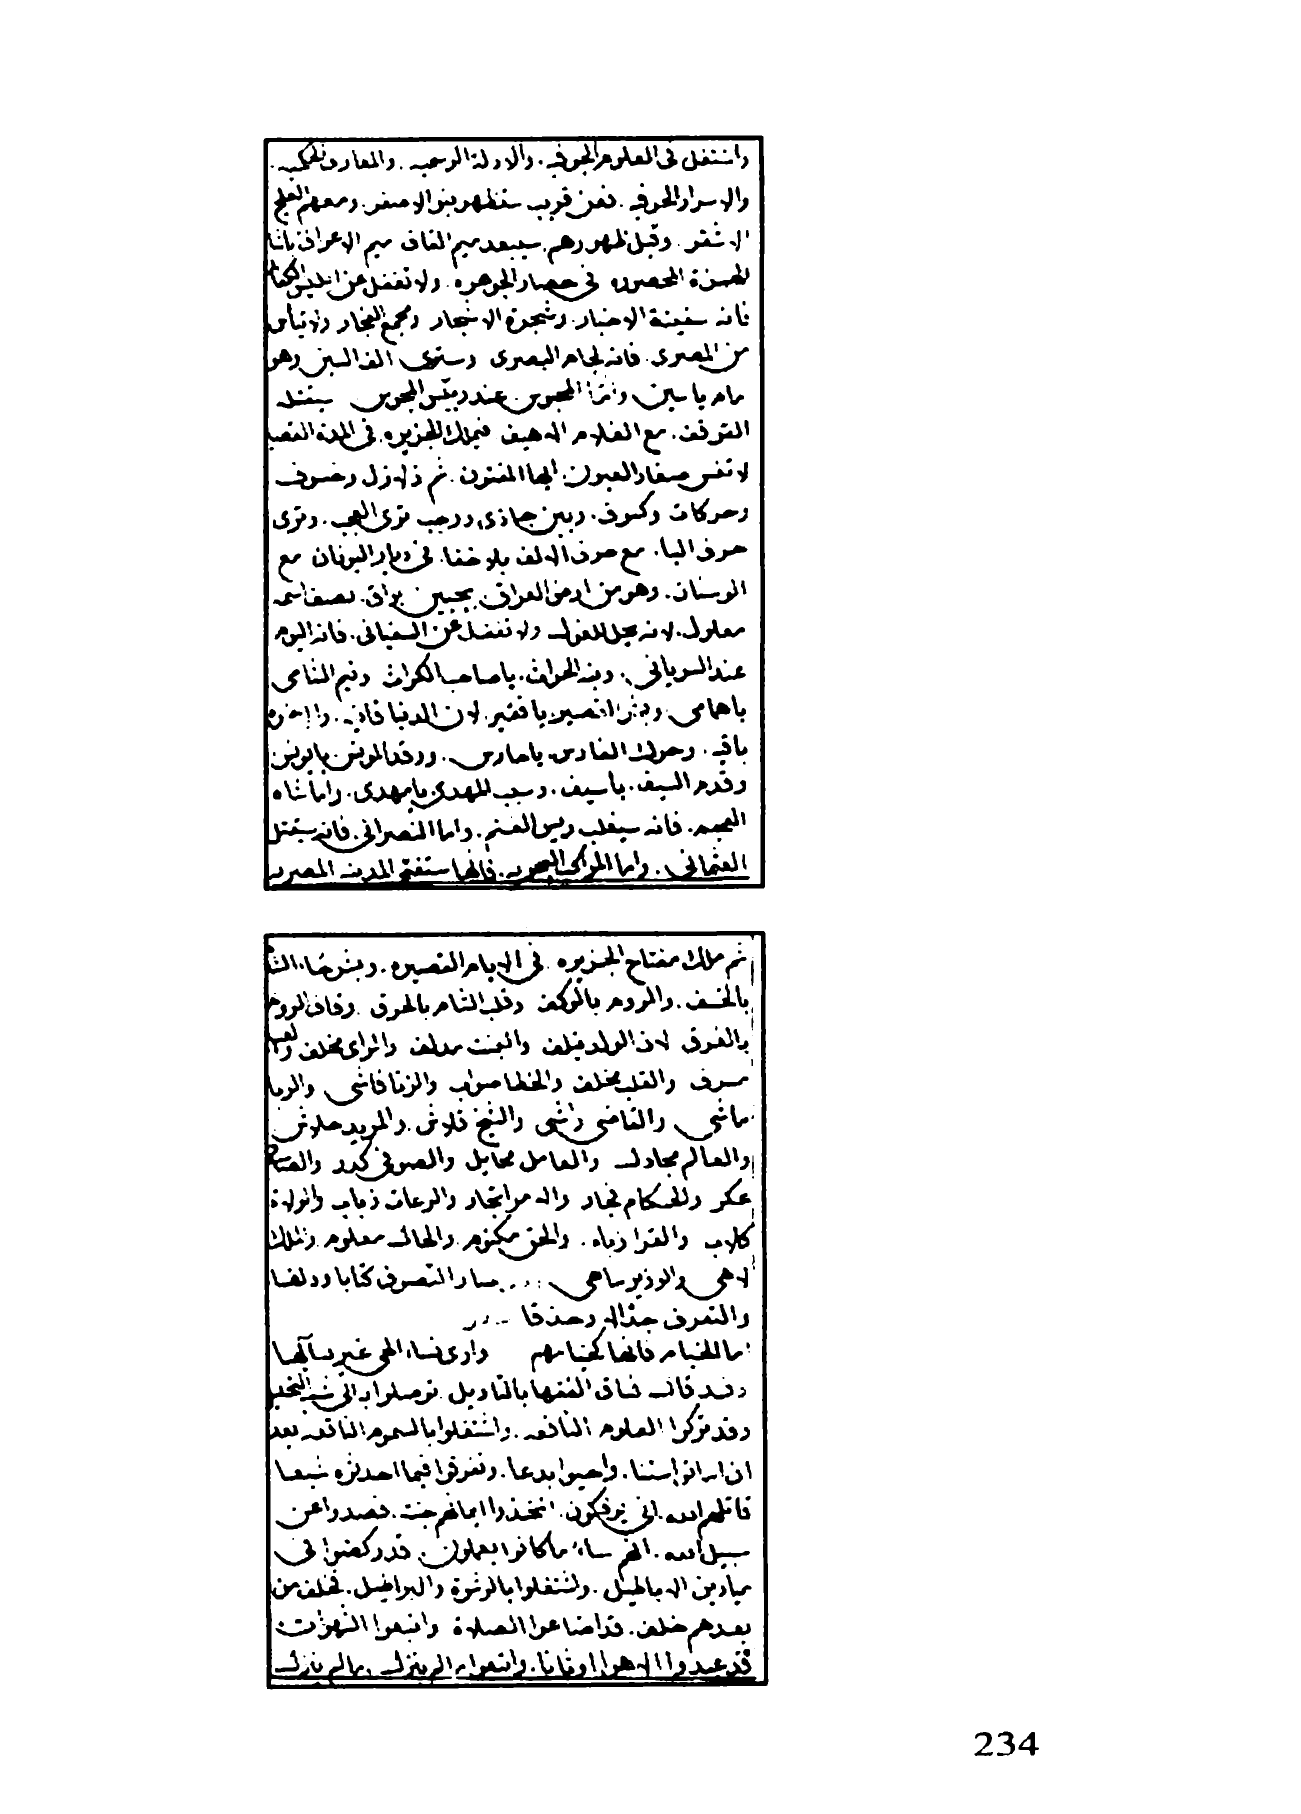 واشتغل فى العلوم الجوفيه . والادلة الوحيه . والمعارف الحكميه .
والاسرار الحرفيه . فعن قريب ستظهر بنو الاصفر . ومعهم العلج
الاشقر . وقبل ظهورهم . سيبعد ميم القاف ميم الاعراف
المحصوره فى حصار الجوهره . ولا تغفل عن
فانه سفينة الاخبار . وشجرة الاشجار ومجمع الفجار ولا تيأس
من المصرى . فانه لجام البصرى وسترى الف السين وهو
مام ياسين . واما المحبوس . عند رئيس المجوس سيقتل
الترقف . مع الغلام الاهيف فيملك الجزيره . فى المدة
لا تنس صغار العيون . ايها المفتون . ثم زلازل وخسوف
وحركات وكسوف . وبين جماذى ورجب ترى العجب . وترى
حرف اليا . مع حرف الالف بلا خفا . فى ديار اليونان مع
الوسنان . وهو من ارض العراق . بجبين براق . نصف اسمه
معلول . لانه عجل للغول ولا تغفل عن السفيانى . فانه اليوم
عند السريانى . وبنه الحراث . يا صاحب الكراث ونيم الشامى
يا هامى . وبشر القصير . يا فقير . لان الدنيا فانيه . والاخره
باقيه . وحرك الفارس . يا حارس . ورقد المونس . يا يونس
وقدم السيف . يا سيف . وسبب المهدى . يا مهدى . واما شاه
العجم . فانه سيغلب ريس الغنم . واما النصرانى . فانه سيقتل
العثمانى . واما المراكب البحريه . فانها ستفتح المدينه المصريه
ثم ملك مفتاح الجزيره فى الايام القصيره . وبشر
بالخسف . والروم بالوكف وقلب الشام بالحرق . وقاف الروم
بالغرق لان الولد متلف والبنت مدلف والراى مخلف
مسرف والقلب مخلف والخطا صواب والزنا فاشى والوبا
ماشى والقاضى راشى والشيخ قلاش . والمريد حلاش .
والعالم مجادل والعامل محايل والصوفى كدر
عكر والحكام فجار والامرا تجار والرعات ذياب والولاة
كلاب والقرا زناه . والحق مكتوم . والحال معلوم . والملك
لاهى والوزير ساهى .... صار التصوف كتابا ودلقا
والتعرف جدالا وحذقا ....
اما الخيام فانها كخيامهم وارى نساء الحى غير نسائها
وقد قال فساق الفقها بالتاويل توصلوا به الى
وقد تركوا العلوم النافعه . واشتغلوا بالسموم الناقعه بعد
ان اماتوا سننا . واحيوا بدعا . وتفرقوا فيما احدثوه شيعا
قاتلهم الله . انى يوفكون . اتخذوا ايمانهم جنت . فصدوا عن
سبيل الله . انهم ساء ما كانوا يعملون . قد ركضوا فى
ميادين الاباطيل . واشتغلوا بالرشوة والبراطيل . فخلف من
بعدهم خلف . قد اضاعوا الصلاة واتبعوا الشهوات
قد عبدوا الاهوا اوثانا . واتبعوا ما لم ينزل
234